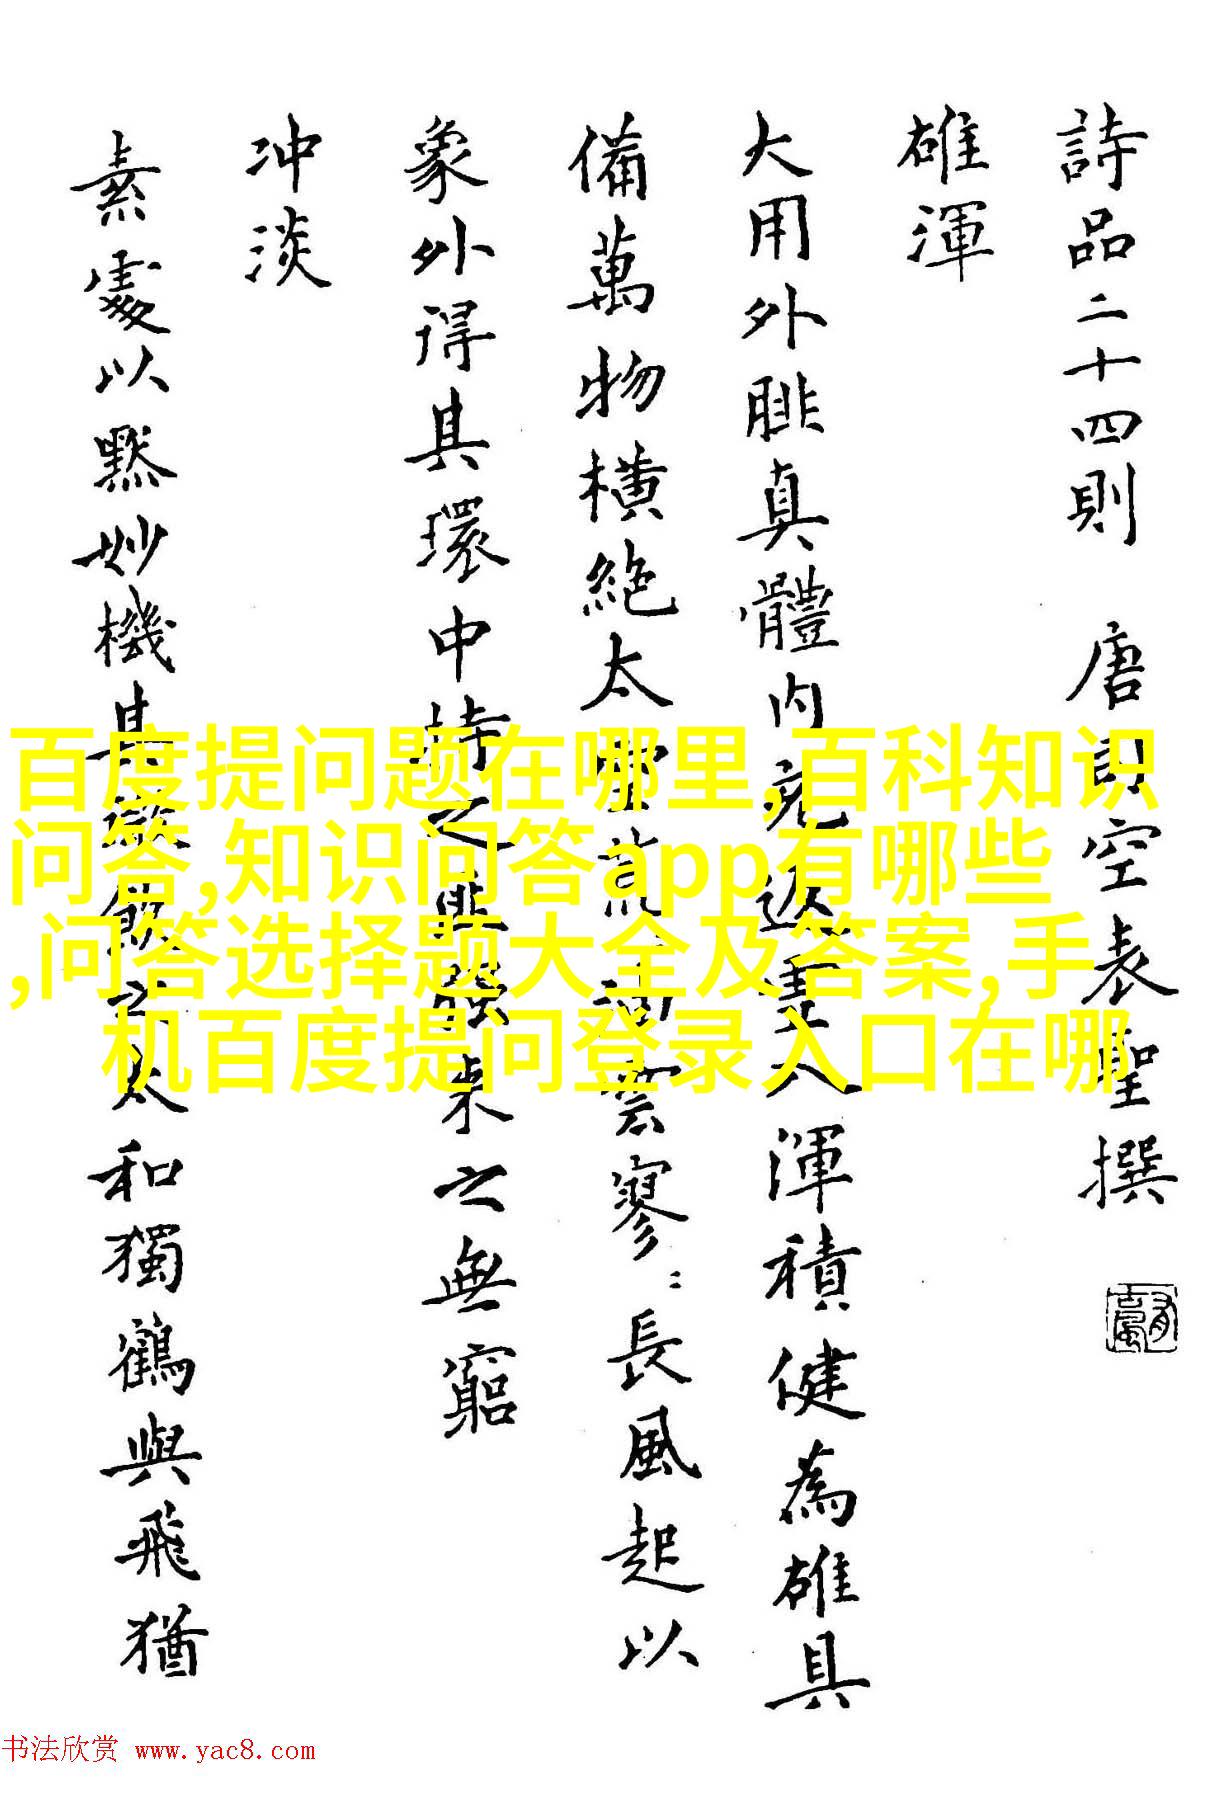 詩品二十四則 唐司空表聖撰
雄渾
大用外腓真體内充返虛入渾積健為雄具
備萬物橫絕太空荒〻油雲寥〻長風起以
象外得其環中持之匪強来之無窮
冲淡
素處以默妙機其微飲之太和獨鶴與飛猶
百度提问题在哪里,百科知识
问答,知识问答app有哪些
,问答选择题大全及答案,手
机百度提问登录入口在哪
书法欣赏 www.yac8.com